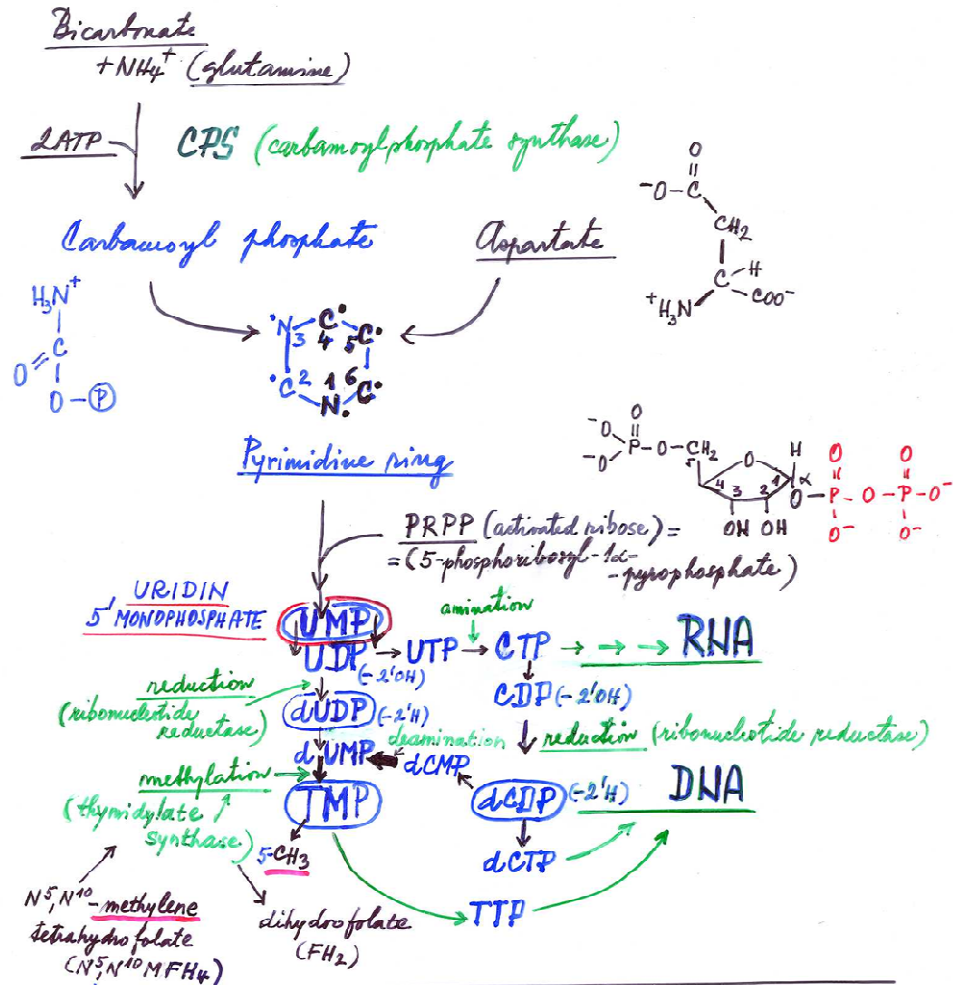 Bicarbonate
+NH4+ (glutamine)
2ATP
CPS (carbamoylphosphate synthase)
Carbamoyl phosphate
Aspartate
O
-O-C
CH2
C-H
COO-
+H3N
H3N+
C
O
O-P
N C C
3 4 5
C 2 1 6 C
N
Pyrimidine ring
O
-O-P-O-CH2
-O
5 O H
4 1 α
3 2
OH OH
O O
O-P-O-P-O-
O- O-
PRPP (activated ribose) =
= (5-phosphoribosyl-1α-
-pyrophosphate)
URIDIN
5' MONOPHOSPHATE
UMP
amination
UDP → UTP → CTP → → → RNA
(-2'OH)
CDP (-2'OH)
reduction
(ribonucleotide
reductase)
dUDP (-2'H)
deamination
reduction (ribonucleotide reductase)
dUMP
dCMP
methylation
(thymidylate
synthase)
TMP
dCDP (-2'H)
DNA
5-CH3
dCTP
TTP
N5,N10-methylene
tetrahydrofolate
(N5,N10MFH4)
dihydrofolate
(FH2)